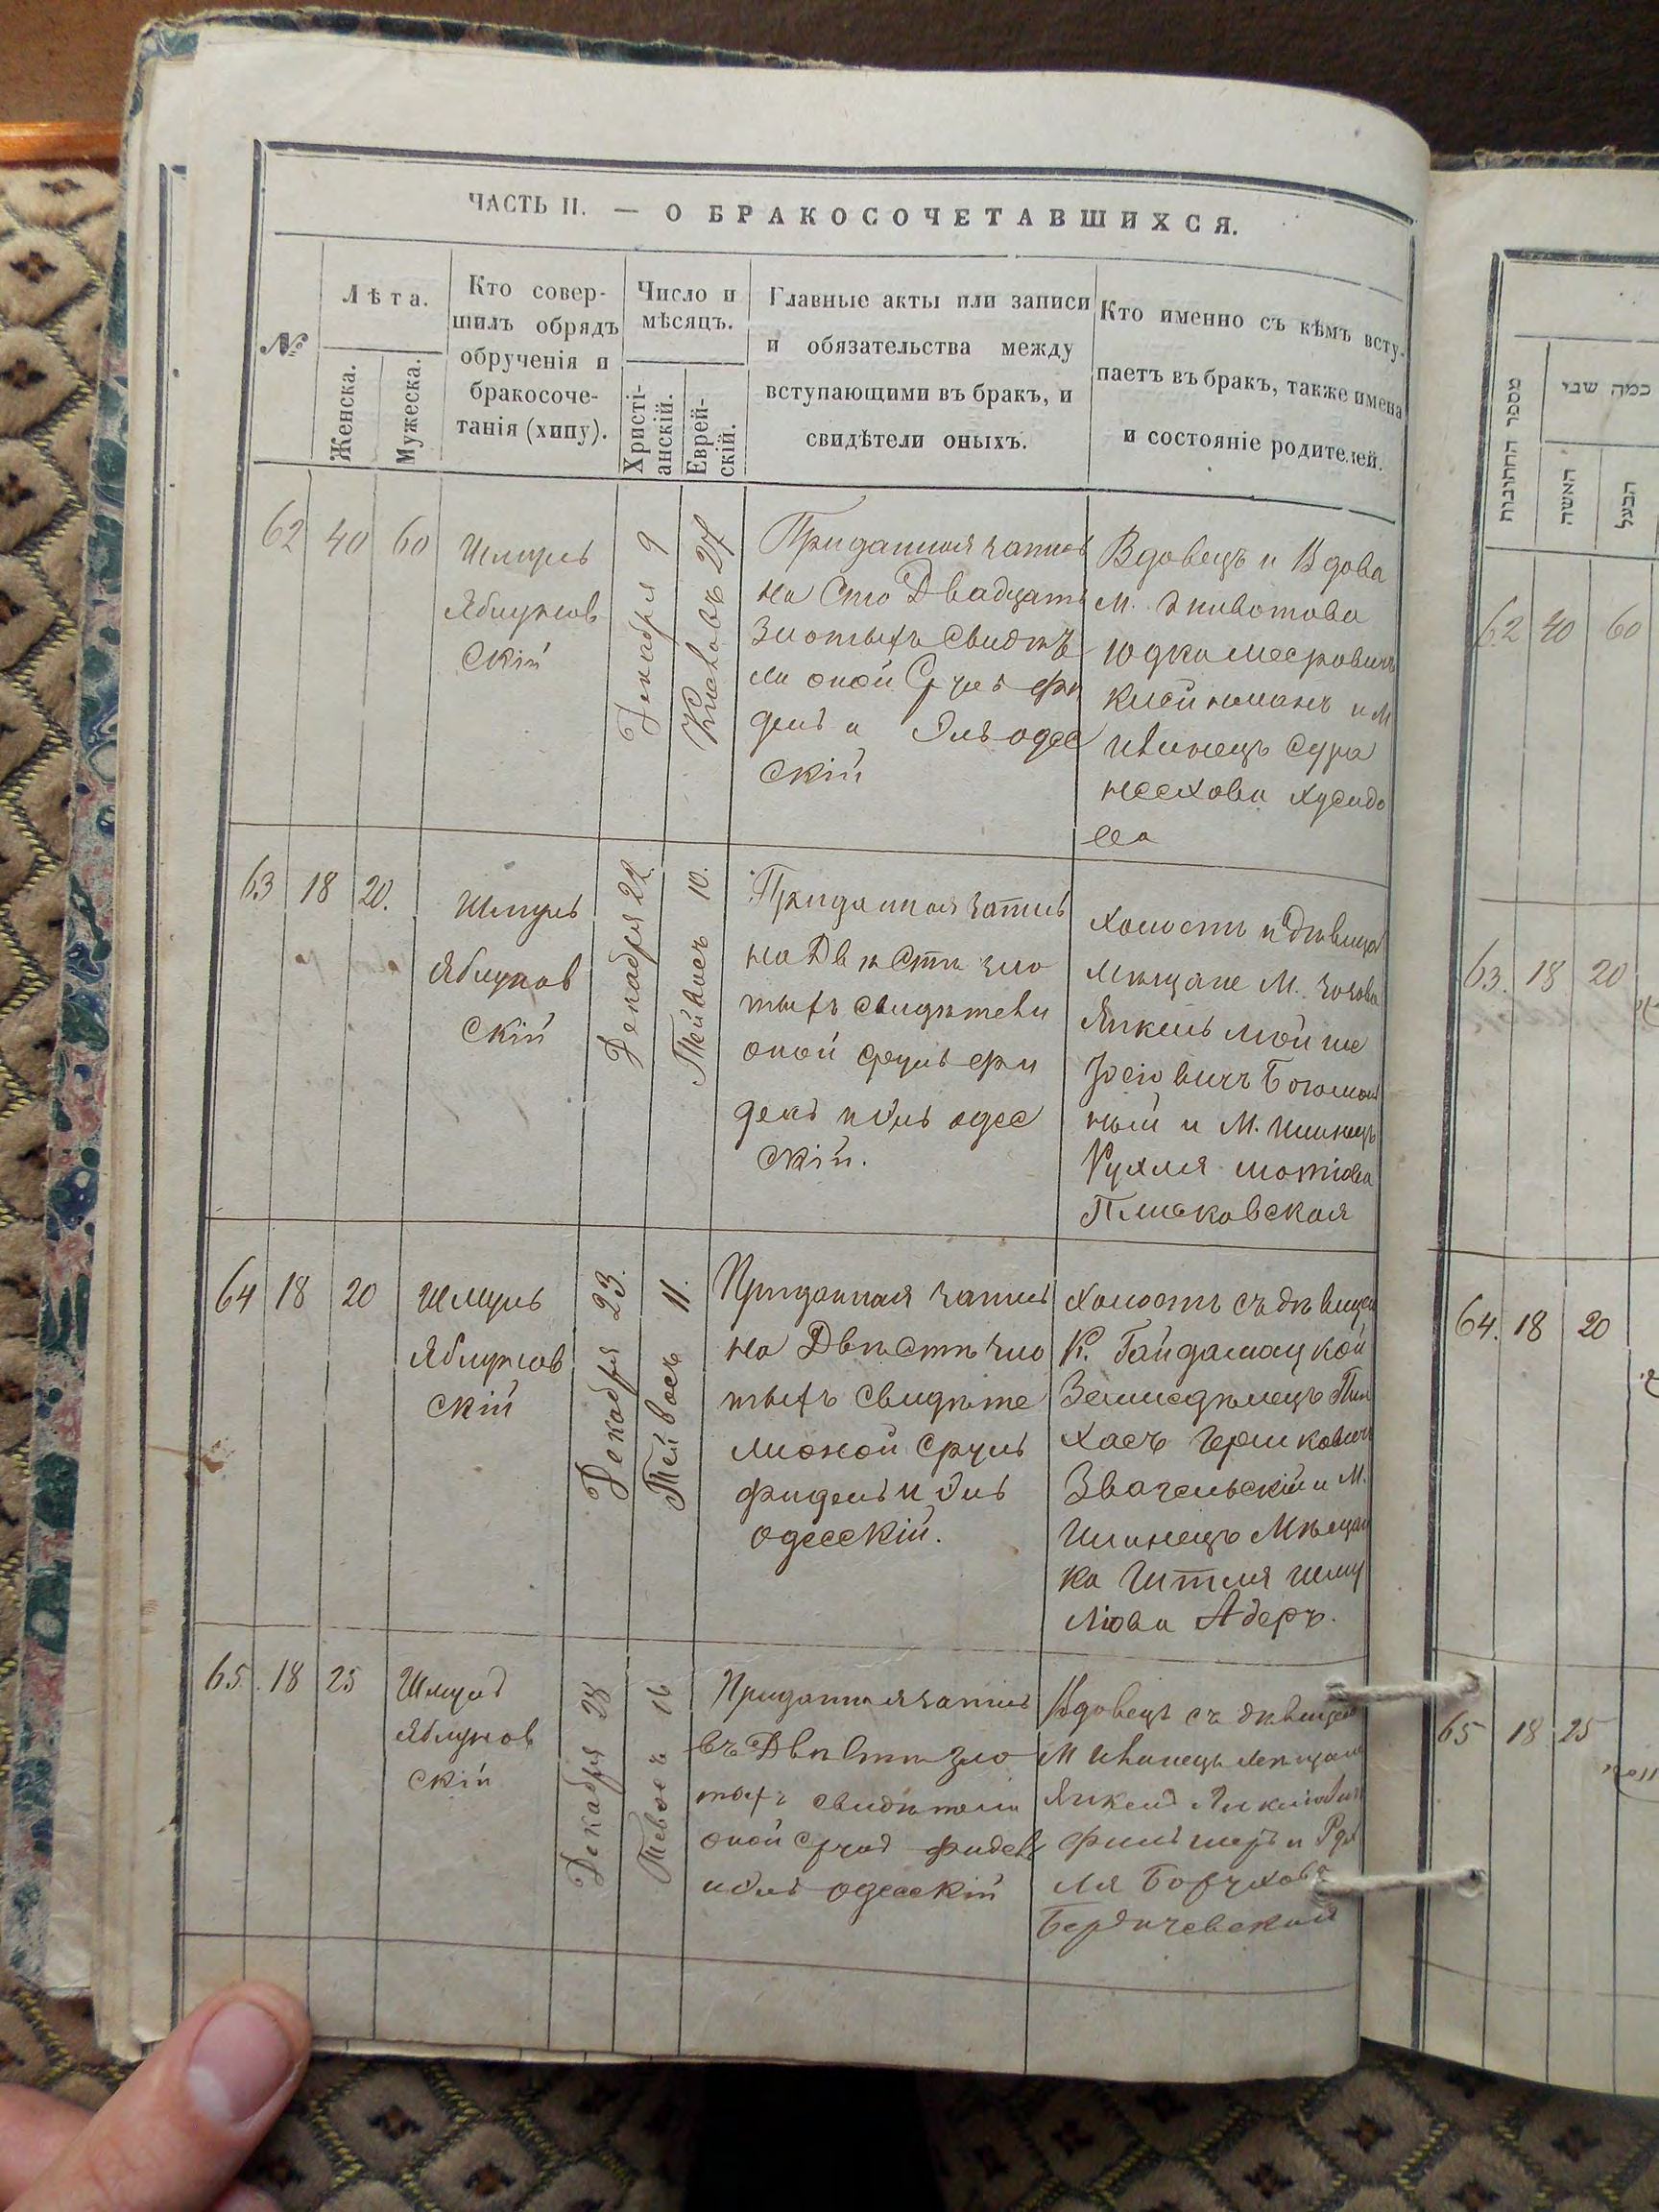 ЧАСТЬ II. — О БРАКОСОЧЕТАВШИХСЯ.
№
Лѣта.
Женска.
Мужеска.
Кто совер-
шилъ обрядъ
обрученія и
бракосоче-
танія (хипу).
Число и
мѣсяцъ.
Христі-
анскій.
Еврей-
скій.
Главные акты или записи
и обязательства между
вступающими въ бракъ, и
свидѣтели оныхъ.
Кто именно съ кѣмъ всту-
паетъ въ бракъ, также имена
и состояніе родителей.
62
40
60
Шмуль
Яблунов
скій
Декабря 9
Кислевъ 27
Приданная запись
на Сто Двадцать
Злотыхъ Свидѣте
ли оной Сруль фри
дель и Эль одес
скій
Вдовецъ и Вдова
м. Животова
Юдко
Клейнманъ и м
Илинецъ Сура
63
18
20.
Шмуль
Яблунов
скій
Декабря 22.
Тейвесъ 10.
Приданная запись
на Двѣсти зло
тыхъ свидѣтели
оной Сруль фри
дель и Эль одес
скій.
Холостъ и дѣвица
Мѣщане М.
Янкель Мойше
Іосіовичъ Богомоль
ный и М. Илинецъ
Рухля
Плисковская
64
18
20
Шмуль
Яблунов
скій
Декабря 23.
Тейвесъ 11.
Приданная запись
на Двѣсти зло
тыхъ свидѣте
ли оной Сруль
фридель и Эль
одесскій.
Холостъ съ дѣвицей
К. Гайдамацкой
Земледѣлецъ Пин
хасъ Гершковичъ
Звагельскій и М.
Илинецъ Мѣщан
ка Итля Шму
лова Адеръ.
65.
18
25
Шмуль
Яблунов
скій
Декабря 28
Тевесъ 16
Приданная запись
въ Двѣсти зло
тыхъ свидѣтели
оной Сруль фридель
и Эль одесскій
Вдовецъ съ дѣвицею
М Илинецъ мѣщане
Янкель Янкелевичъ
и
ля Борухова
Бердичевская
מספר החתונות
כמה שני
האשה
הבעל
62
40
60
63.
18
20
64.
18
20
65
18
25